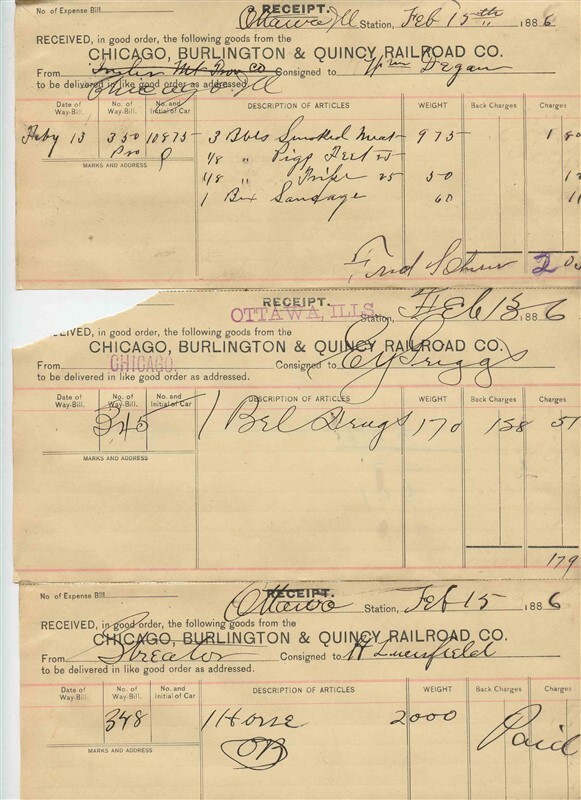 No. of Expense Bill
RECEIPT.
Ottawa Ill Station, Feb 15th 1886
RECEIVED, in good order, the following goods from the
CHICAGO, BURLINGTON & QUINCY RAILROAD CO.
From Consigned to Wm Degan
to be delivered in like good order as addressed.
Chicago Ill
Date of Way-Bill. No. of Way-Bill. No. and Initial of Car DESCRIPTION OF ARTICLES WEIGHT Back Charges Charges
Feby 13 350 10875 3 Bbls Smoked Meat 975 1 80
Pro Q 1/8 " Pigs Feet 25
MARKS AND ADDRESS
1/8 " Tripe 25 50
1 Box Sausage 60
Fred 2
RECEIPT.
OTTAWA, ILLS. Station, Feb 15 1886
IVED, in good order, the following goods from the
CHICAGO, BURLINGTON & QUINCY RAILROAD CO.
From CHICAGO. Consigned to E Y Griggs
to be delivered in like good order as addressed.
Date of Way-Bill. No. of Way-Bill. No. and Initial of Car DESCRIPTION OF ARTICLES WEIGHT Back Charges Charges
345 1 Bbl Drugs 170 158
MARKS AND ADDRESS
179
No. of Expense Bill
RECEIPT.
Ottawa Station, Feb 15 1886
RECEIVED, in good order, the following goods from the
CHICAGO, BURLINGTON & QUINCY RAILROAD CO.
From Streator Consigned to H
to be delivered in like good order as addressed.
Date of Way-Bill. No. of Way-Bill. No. and Initial of Car DESCRIPTION OF ARTICLES WEIGHT Back Charges Charges
348 1 Horse 2000 Paid
MARKS AND ADDRESS
OR